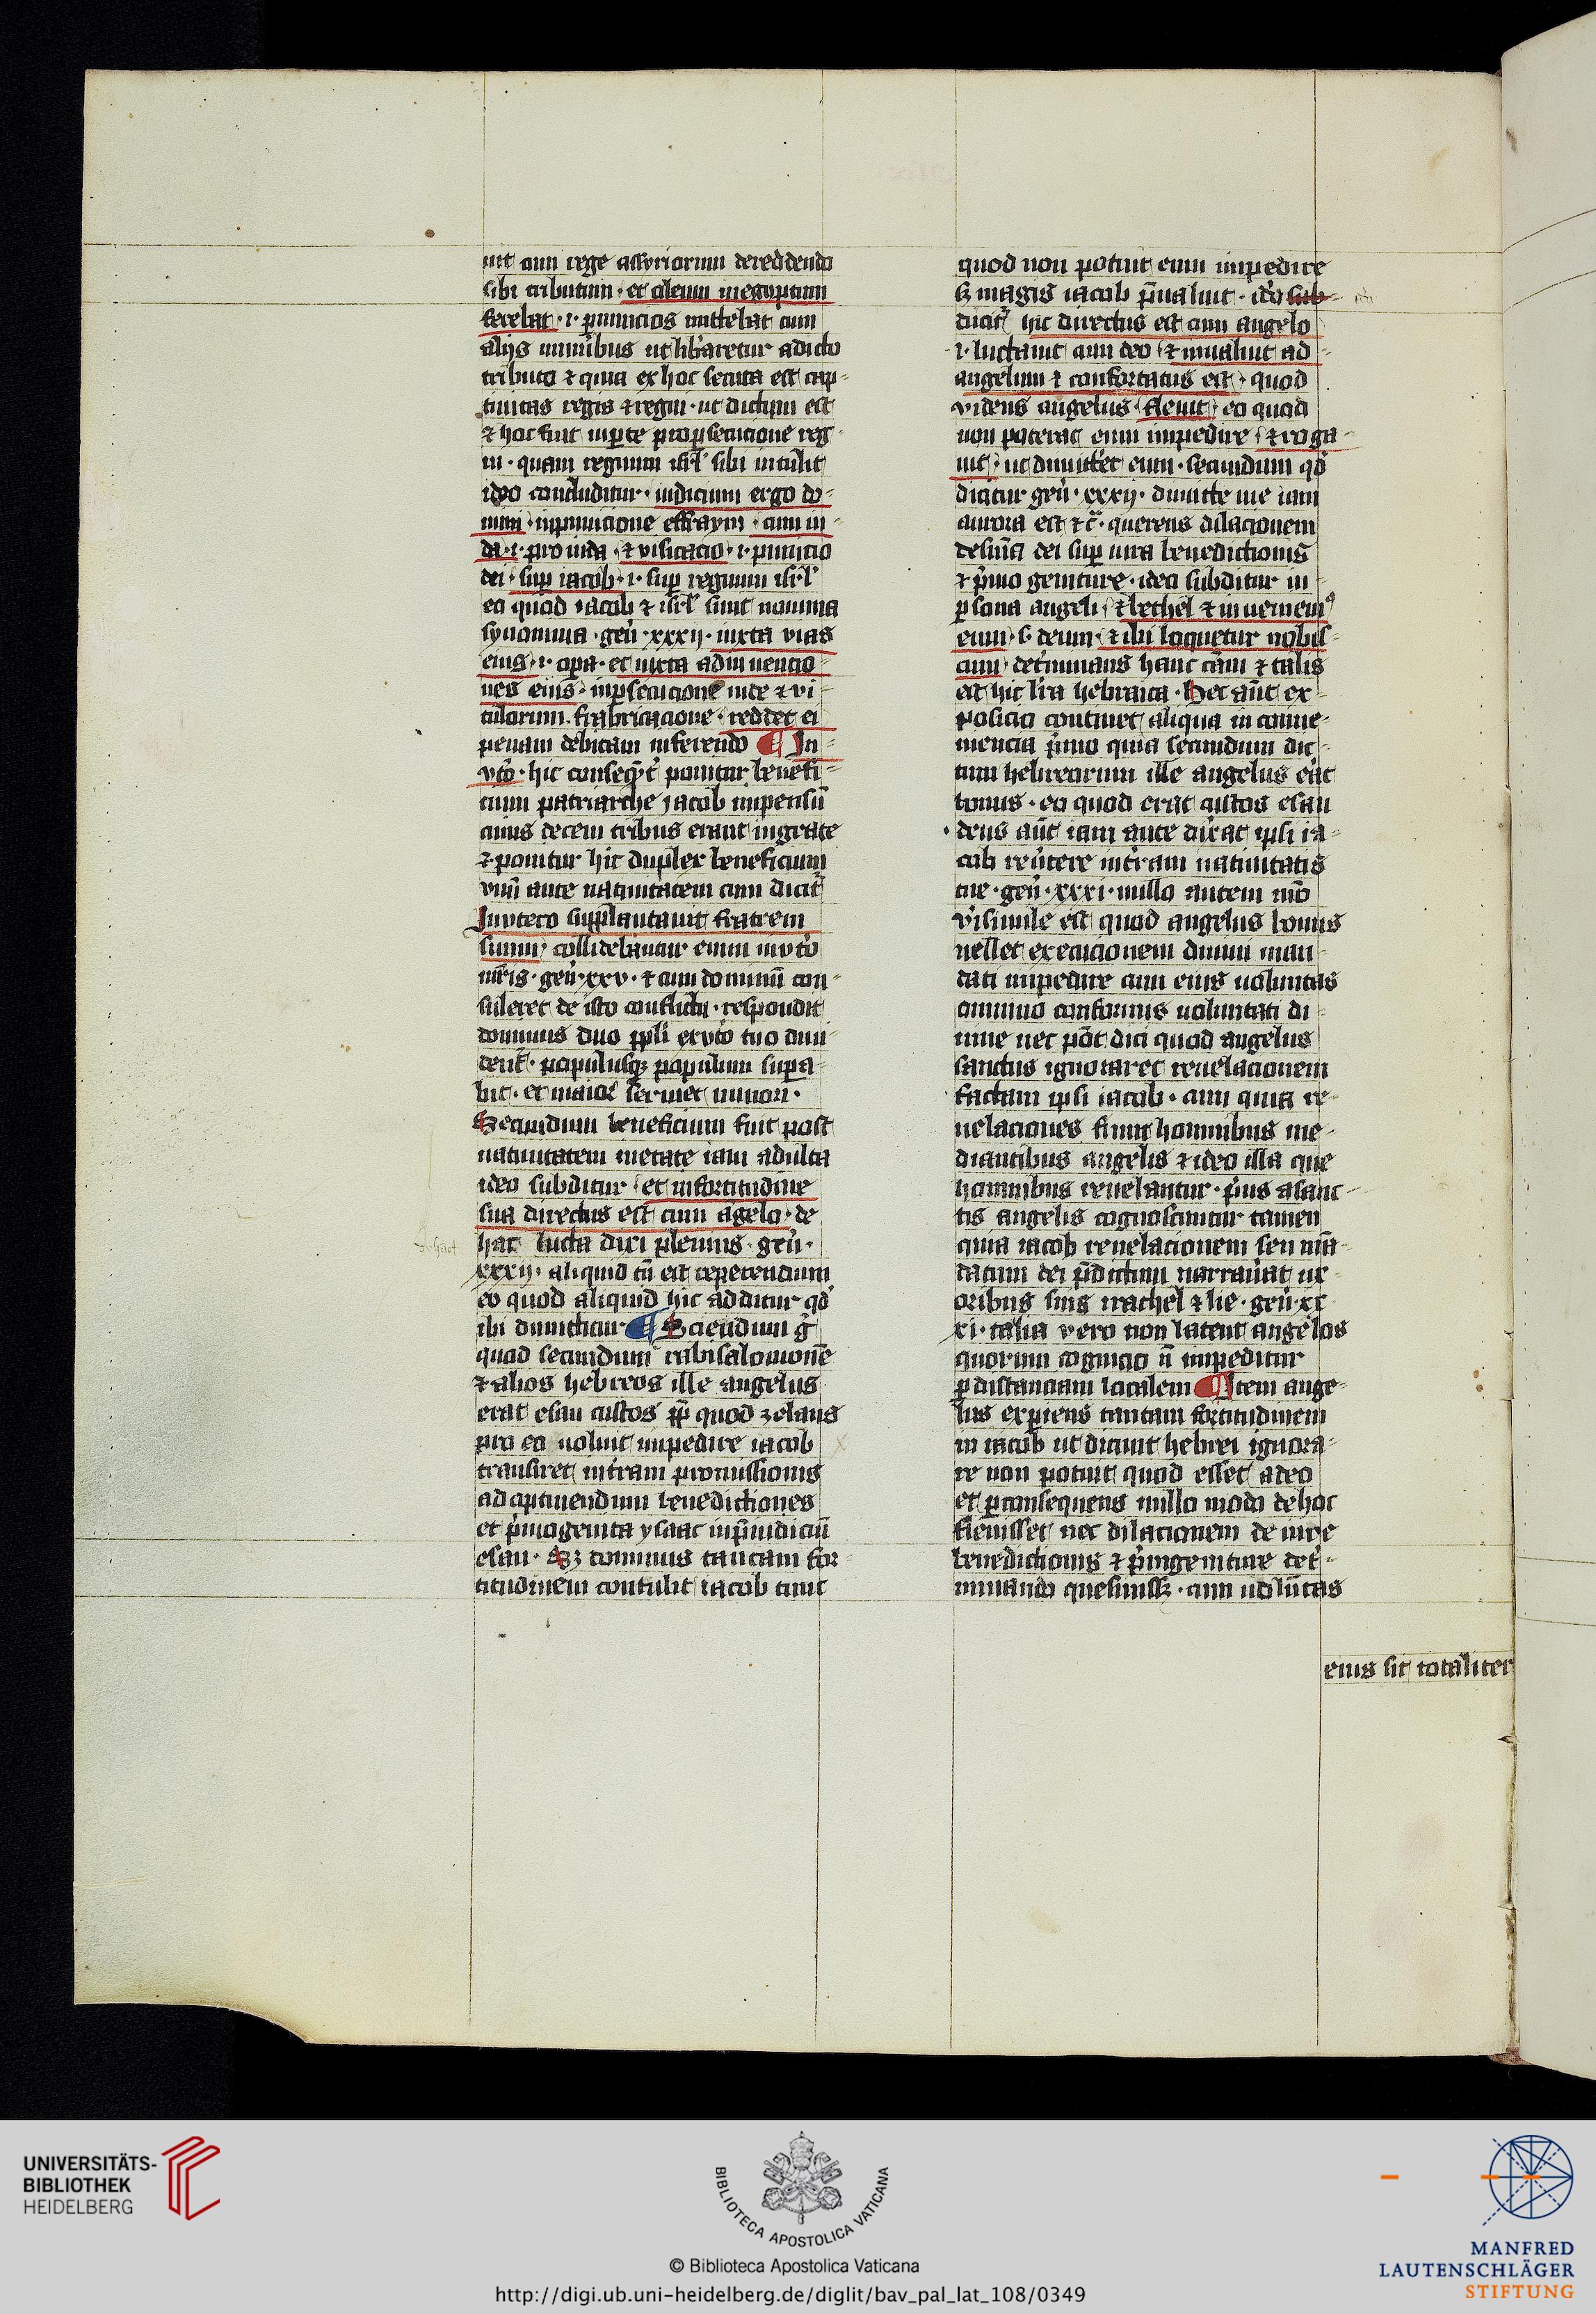 uit cum rege assyriorum dereddendo
sibi tributum · et oleum inegyptum
ferebat · i · pnuncios mittebat cum
alijs munibus ut libaretur adicto
tributo ⁊ quia ex hoc secuta est cap-
tiuitas regis ⁊ regni · ut dictum est
⁊ hoc fuit inpte pro psecucione reg-
ni · quam regnum isrl sibi intulit
ideo concluditur · iudicium ergo do-
mini · inpunicione effraym · cum iu-
da · i · pro iuda · ⁊ visitacio · i · punicio
dei · sup iacob · i · sup regnum isrl
eo quod iacob ⁊ isrl sunt nomina
synonima · gen · xxxij · iuxta vias
eius · i · opa · et iuxta adinuencio-
nes eius · inpsecucione iude ⁊ vi-
tulorum fabricacione · reddet ei
penam debitam inferendo ¶ In-
vto · hic consequt ponitur benefi-
cium patriarche jacob impensu
cuius decem tribus erant ingrate
⁊ ponitur hic duplex beneficium
vnu ante natiuitatem cum dicit
Invtero supplantauit fratrem
suum · collidebantur enim invto
mris · gen · xxv · ⁊ cum dominu con-
suleret de isto conflictu · respondit
dominus duo ppli exvto tuo diui-
dent · populusqꝫ populum supa-
bit · et maior seruiet minori ·
Secundum beneficium fuit post
natiuitatem inetate iam adulta
ideo subditur · et infortitudine
sua directus est cum agelo · de
hac lucta dixi plenius · gen ·
xxxij · aliquid tn est repetendum
eo quod aliquid hic additur qd
ibi dimittitur ¶ Sciendum g
quod secundum rabisalomone
⁊ alios hebreos ille angelus
erat esau custos pp quod zelans
pro eo uoluit impedire iacob
transiret intram promissionis
ad optinendum benedictiones
et pmogenita ysaac inpiudiciu
esau · Sꝫ dominus tantam for-
titudinem contulit iacob tunc
quod non potuit eum impedire
sꝫ magis iacob pualuit · ido sub-
dicit hic directus est cum angelo
i · luctauit cum deo · ⁊ inualuit ad
angelum ⁊ confortatus est · quod
videns angelus · fleuit · eo quod
non poterat eum impedire · ⁊ roga-
uit · ut dimittet eum · secundum qd
dicitur gen · xxxij · dimitte me iam
aurora est ⁊c · querens dilacionem
desnia dei sup iura benedictionis
⁊ pmo geniture · ideo subditur in
psona angeli · ⁊ bethel ⁊ inueniem
eum · s · deum · ⁊ ibi loquetur nobis-
cum · detminans hanc cam ⁊ talis
est hic lra hebraica · Hec aut ex-
posicio continet aliqua inconue-
niencia pmo quia secundum dic-
tum hebreorum ille angelus erat
bonus · eo quod erat custos esau
deus aut iam ante dixat ipsi ia-
cob reutere intram natiuitatis
tue · gen · xxxi · nullo autem mo
visimile est quod angelus bonus
uellet execucionem diuini man-
dati impedire cum eius uoluntas
omnino conformis uoluntati di-
uine nec pot dici quod angelus
sanctus ignoraret reuelacionem
factam ipsi iacob · cum quia re-
uelaciones fiunt hominibus me-
diantibus angelis ⁊ ideo illa que
hominibus reuelantur · pius asanc-
tis angelis cognoscuntur tamen
quia iacob reuelacionem seu man-
datum dei pdictum narrauat ux-
oribus suis rachel ⁊ lie · gen · xx
xi · talia vero non latent angelos
quorum cognicio n impeditur
p distanciam localem ¶ Item ange-
lus expiens tantam fortitudinem
in iacob ut dicunt hebrei ignora-
re non potuit quod esset adeo
et pconsequens nullo modo dehoc
fleuisset nec dilacionem de iure
benedictionis ⁊ pmgeniture det-
minando quesiuissꝫ · cum uoluntas
eius sit totaliter
UNIVERSITÄTS-
BIBLIOTHEK
HEIDELBERG
BIBLIOTECA APOSTOLICA VATICANA
© Biblioteca Apostolica Vaticana
http://digi.ub.uni-heidelberg.de/diglit/bav_pal_lat_108/0349
MANFRED
LAUTENSCHLÄGER
STIFTUNG